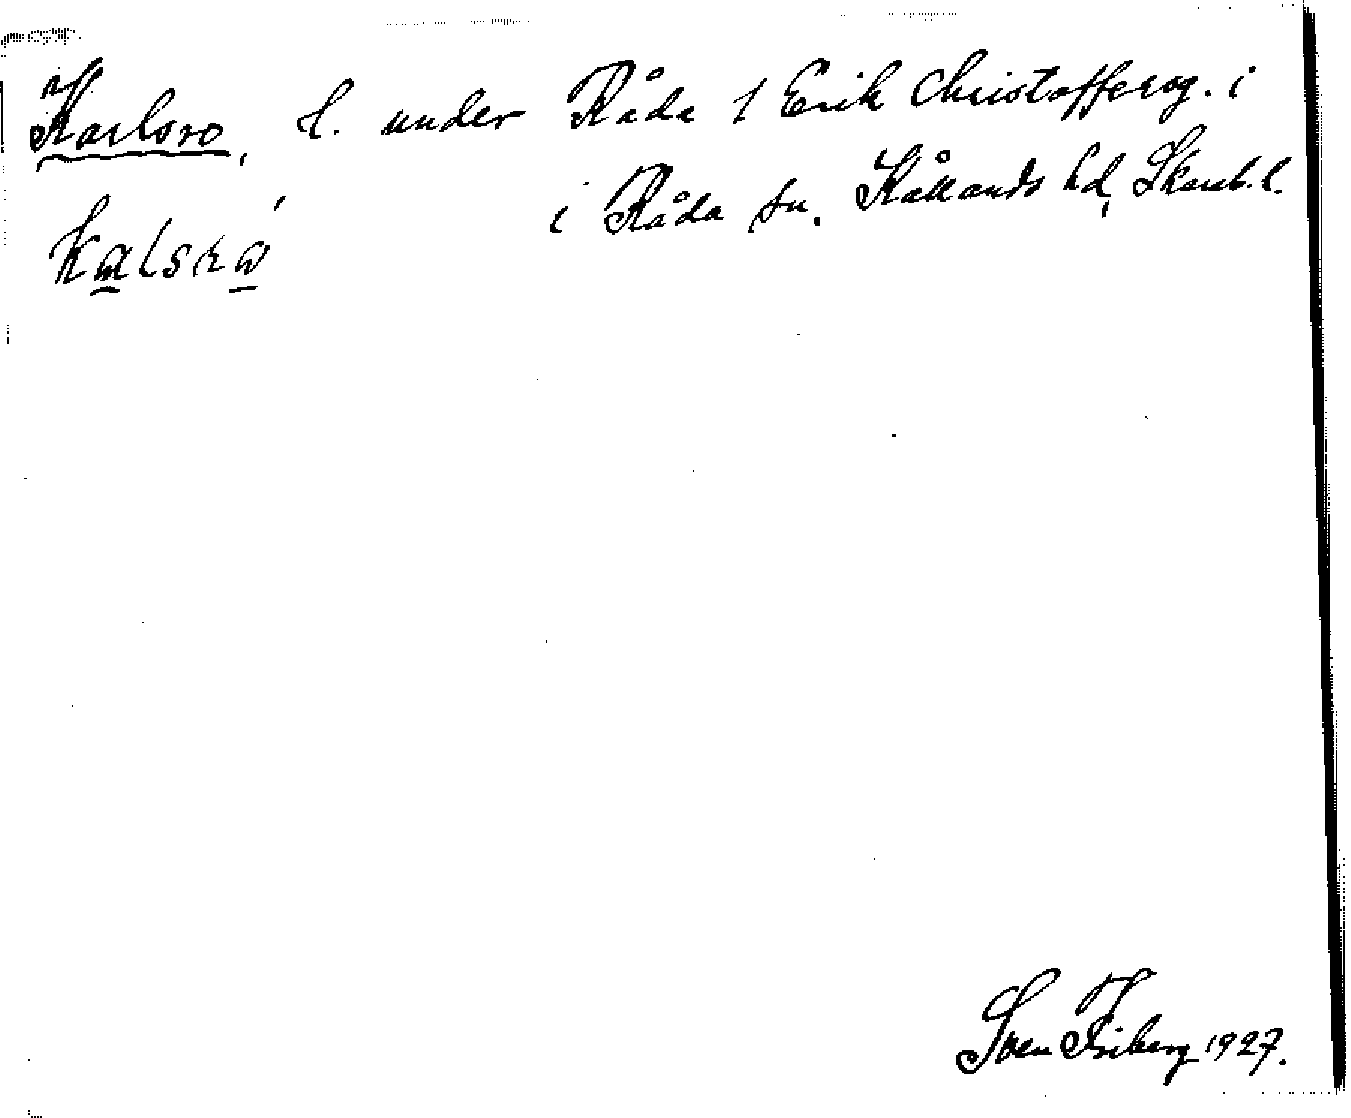 Karlsro, l. under Råda 1 Erik Christoffersg. i
i Råda sn. Kållands hd, Skarab. l.
Kalsrω´
Sven Friberg 1927.